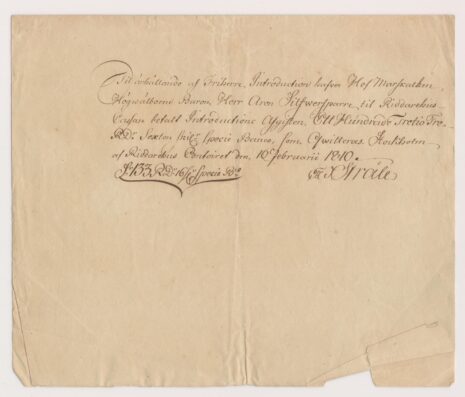 Til erhållande af Friherr. Introduction hafver Hof Marskalken
Högwälborne Baron Herr Aron Silfwersparre til Riddarehus
Cassan betalt Introductions Afgiften Ett Hundrade Trettio Tre
RDr. Sexton Specie Banco, som Qwitteras. Stockholm
af Riddarehus Contoiret den 10 Februarii 1810.
133 RDr 16 Specie Bo
Stråle